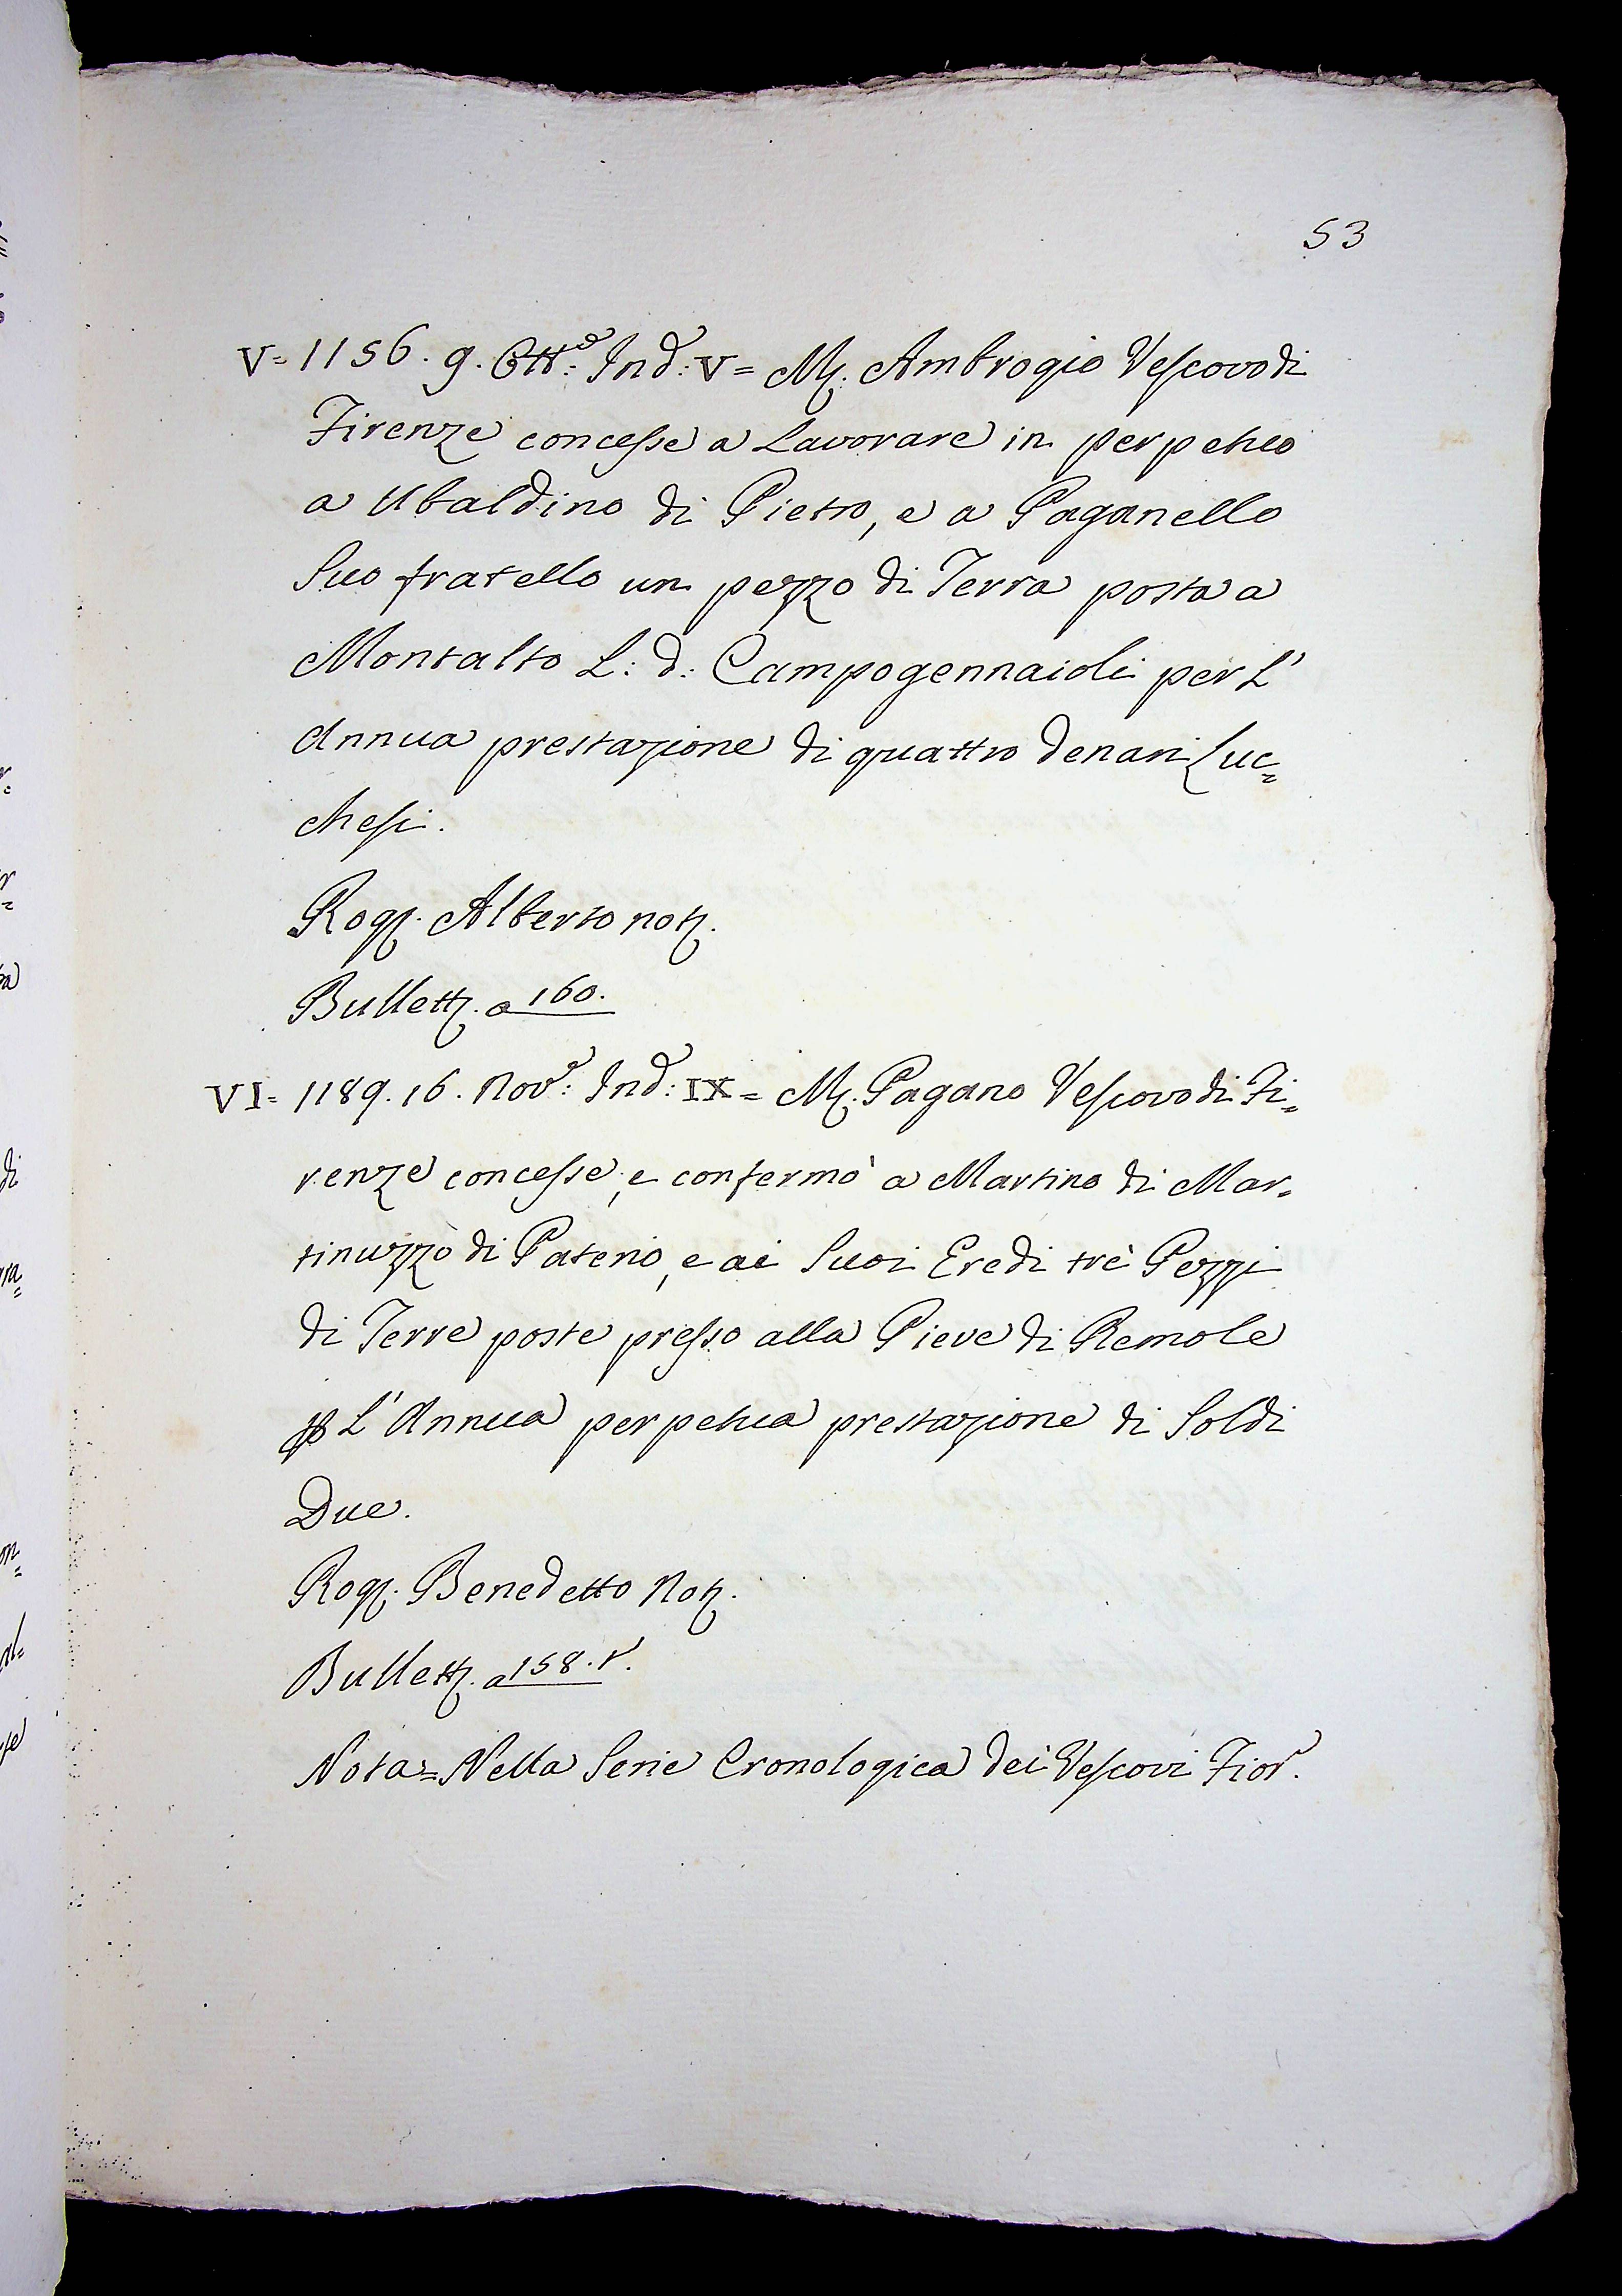 53
V = 1156. 9. Ott.e: Ind: V = M. Ambrogio Vescovo di
Firenze concesse a Lavorare in perpetuo
a Ubaldino di Pietro, e a Paganello
Suo fratello un pezzo di Terra posta a
Montalto L: d: Campogennaioli per L'
Annua prestazione di quattro denari Luc=
chesi.
Rog. Alberto not.
Bullett. a 160.
VI = 1189. 16. Nov.e: Ind: IX = M. Pagano Vescovo di Fi=
renze concesse, e confermò a Martino di Mar=
tinuzzo di Paterno, e ai Suoi Eredi trè Pezzi
di Terre poste presso alla Pieve di Remole
p L' Annua perpetua prestazione di Soldi
Due.
Rog. Benedetto Not.
Bullett. a 158. r.
Nota = Nella Serie Cronologica dei Vescovi Fior.